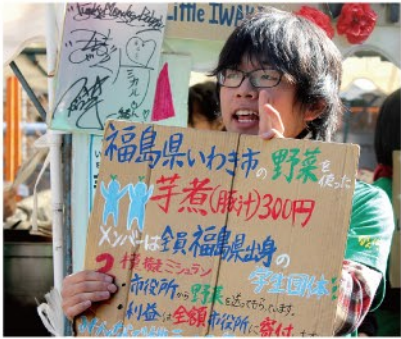 Little IWAKI
ミカルさん
福島県いわき市の野菜を使った
芋煮(豚汁)300円
メンバーは全員福島県出身の
学生団体
模擬ミシュラン
・市役所から野菜を送ってもらっています。
・利益は全額市役所に寄付